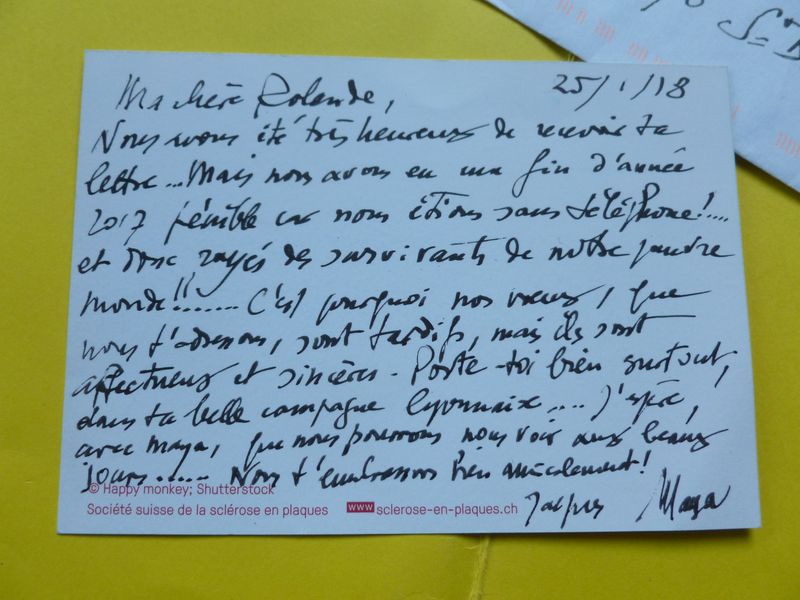 Ma chère Rolande,
25/1/18
Nous avons été très heureux de recevoir ta
lettre...Mais nous avons eu une fin d'année
2017 pénible car nous étions sans téléphone!....
et donc rayés des survivants de notre pauvre
monde!!....... C'est pourquoi nos voeux, que
nous t'adressons, sont tardifs, mais ils sont
affectueux et sincères. Porte-toi bien surtout,
dans ta belle campagne lyonnaise.... J'espère,
avec Maya, que nous pourrons nous voir aux beaux
jours...... Nous t'embrassons bien amicalement!
Jacques Maya
© Happy monkey; Shutterstock
Société suisse de la sclérose en plaques www.sclerose-en-plaques.ch